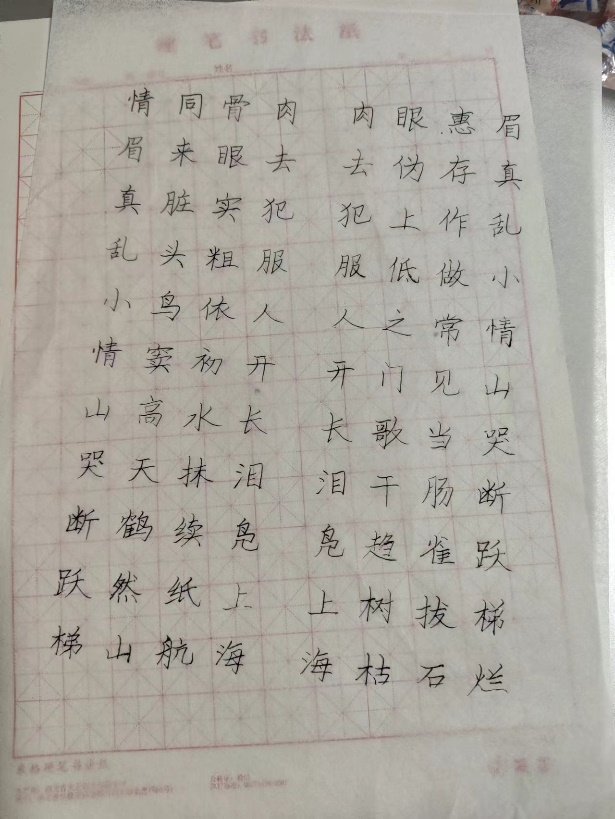 硬笔书法纸
姓名
情同骨肉 肉眼惠眉
眉来眼去 去伪存真
真脏实犯 犯上作乱
乱头粗服 服低做小
小鸟依人 人之常情
情窦初开 开门见山
山高水长 长歌当哭
哭天抹泪 泪干肠断
断鹤续凫 凫趋雀跃
跃然纸上 上树拔梯
梯山航海 海枯石烂